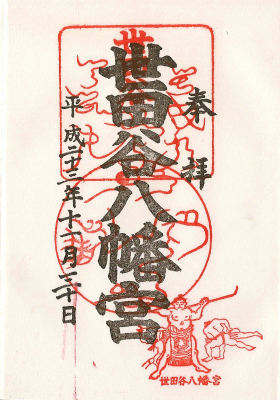 奉拝
世田谷八幡宮
平成二十三年十一月三十日
世田谷八幡宮